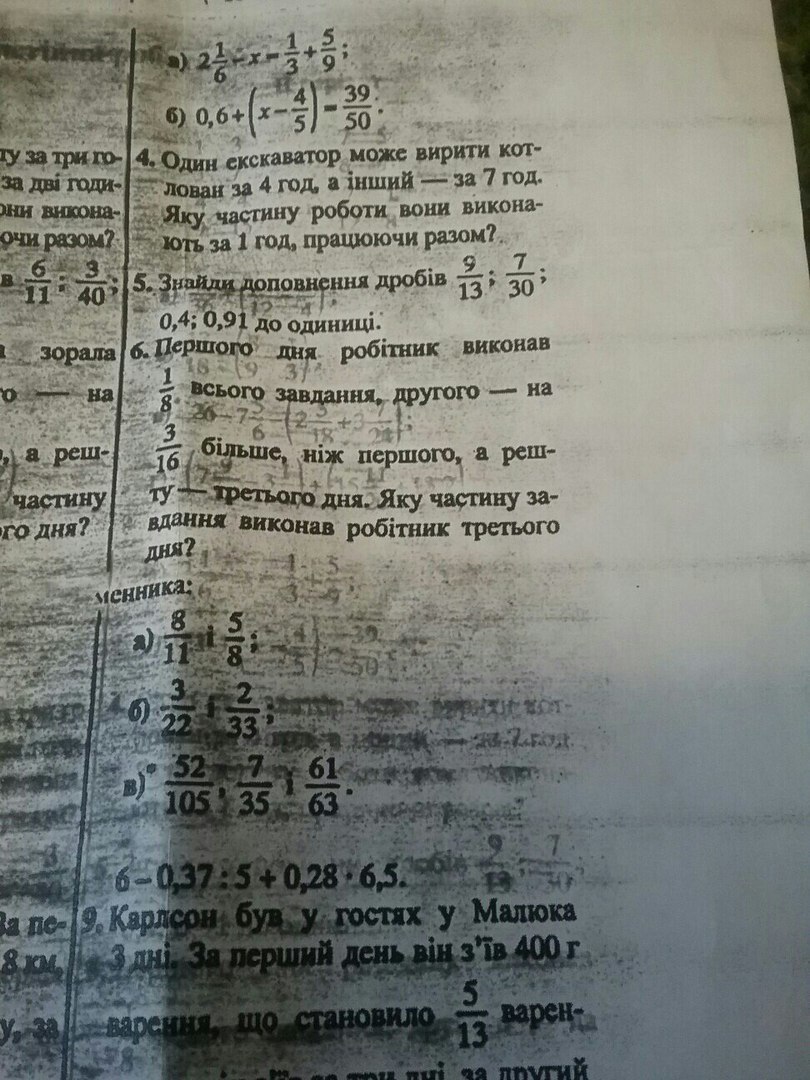 а) 2 1/6 - x = 1/3 + 5/9;
б) 0,6 + (x - 4/5) = 39/50.
ту за три го-
за дві годи-
они викона-
ючи разом?
в 6/11; 3/40;
зорала
го — на
, а реш-
частину
го дня?
4. Один екскаватор може вирити кот-
лован за 4 год, а інший — за 7 год.
Яку частину роботи вони викона-
ють за 1 год, працюючи разом?
5. Знайди доповнення дробів 9/13; 7/30;
0,4; 0,91 до одиниці.
6. Першого дня робітник виконав
1/8 всього завдання, другого — на
3/16 більше, ніж першого, а реш-
ту — третього дня. Яку частину за-
вдання виконав робітник третього
дня?
менника:
а) 8/11 і 5/8;
б) 3/22 і 2/33;
в)* 52/105, 7/35 і 61/63.
6 – 0,37 : 5 + 0,28 · 6,5.
За пе-
8 км,
у, за
9. Карлсон був у гостях у Малюка
3 дні. За перший день він з'їв 400 г
варення, що становило 5/13 варен-
за три дні, за другий